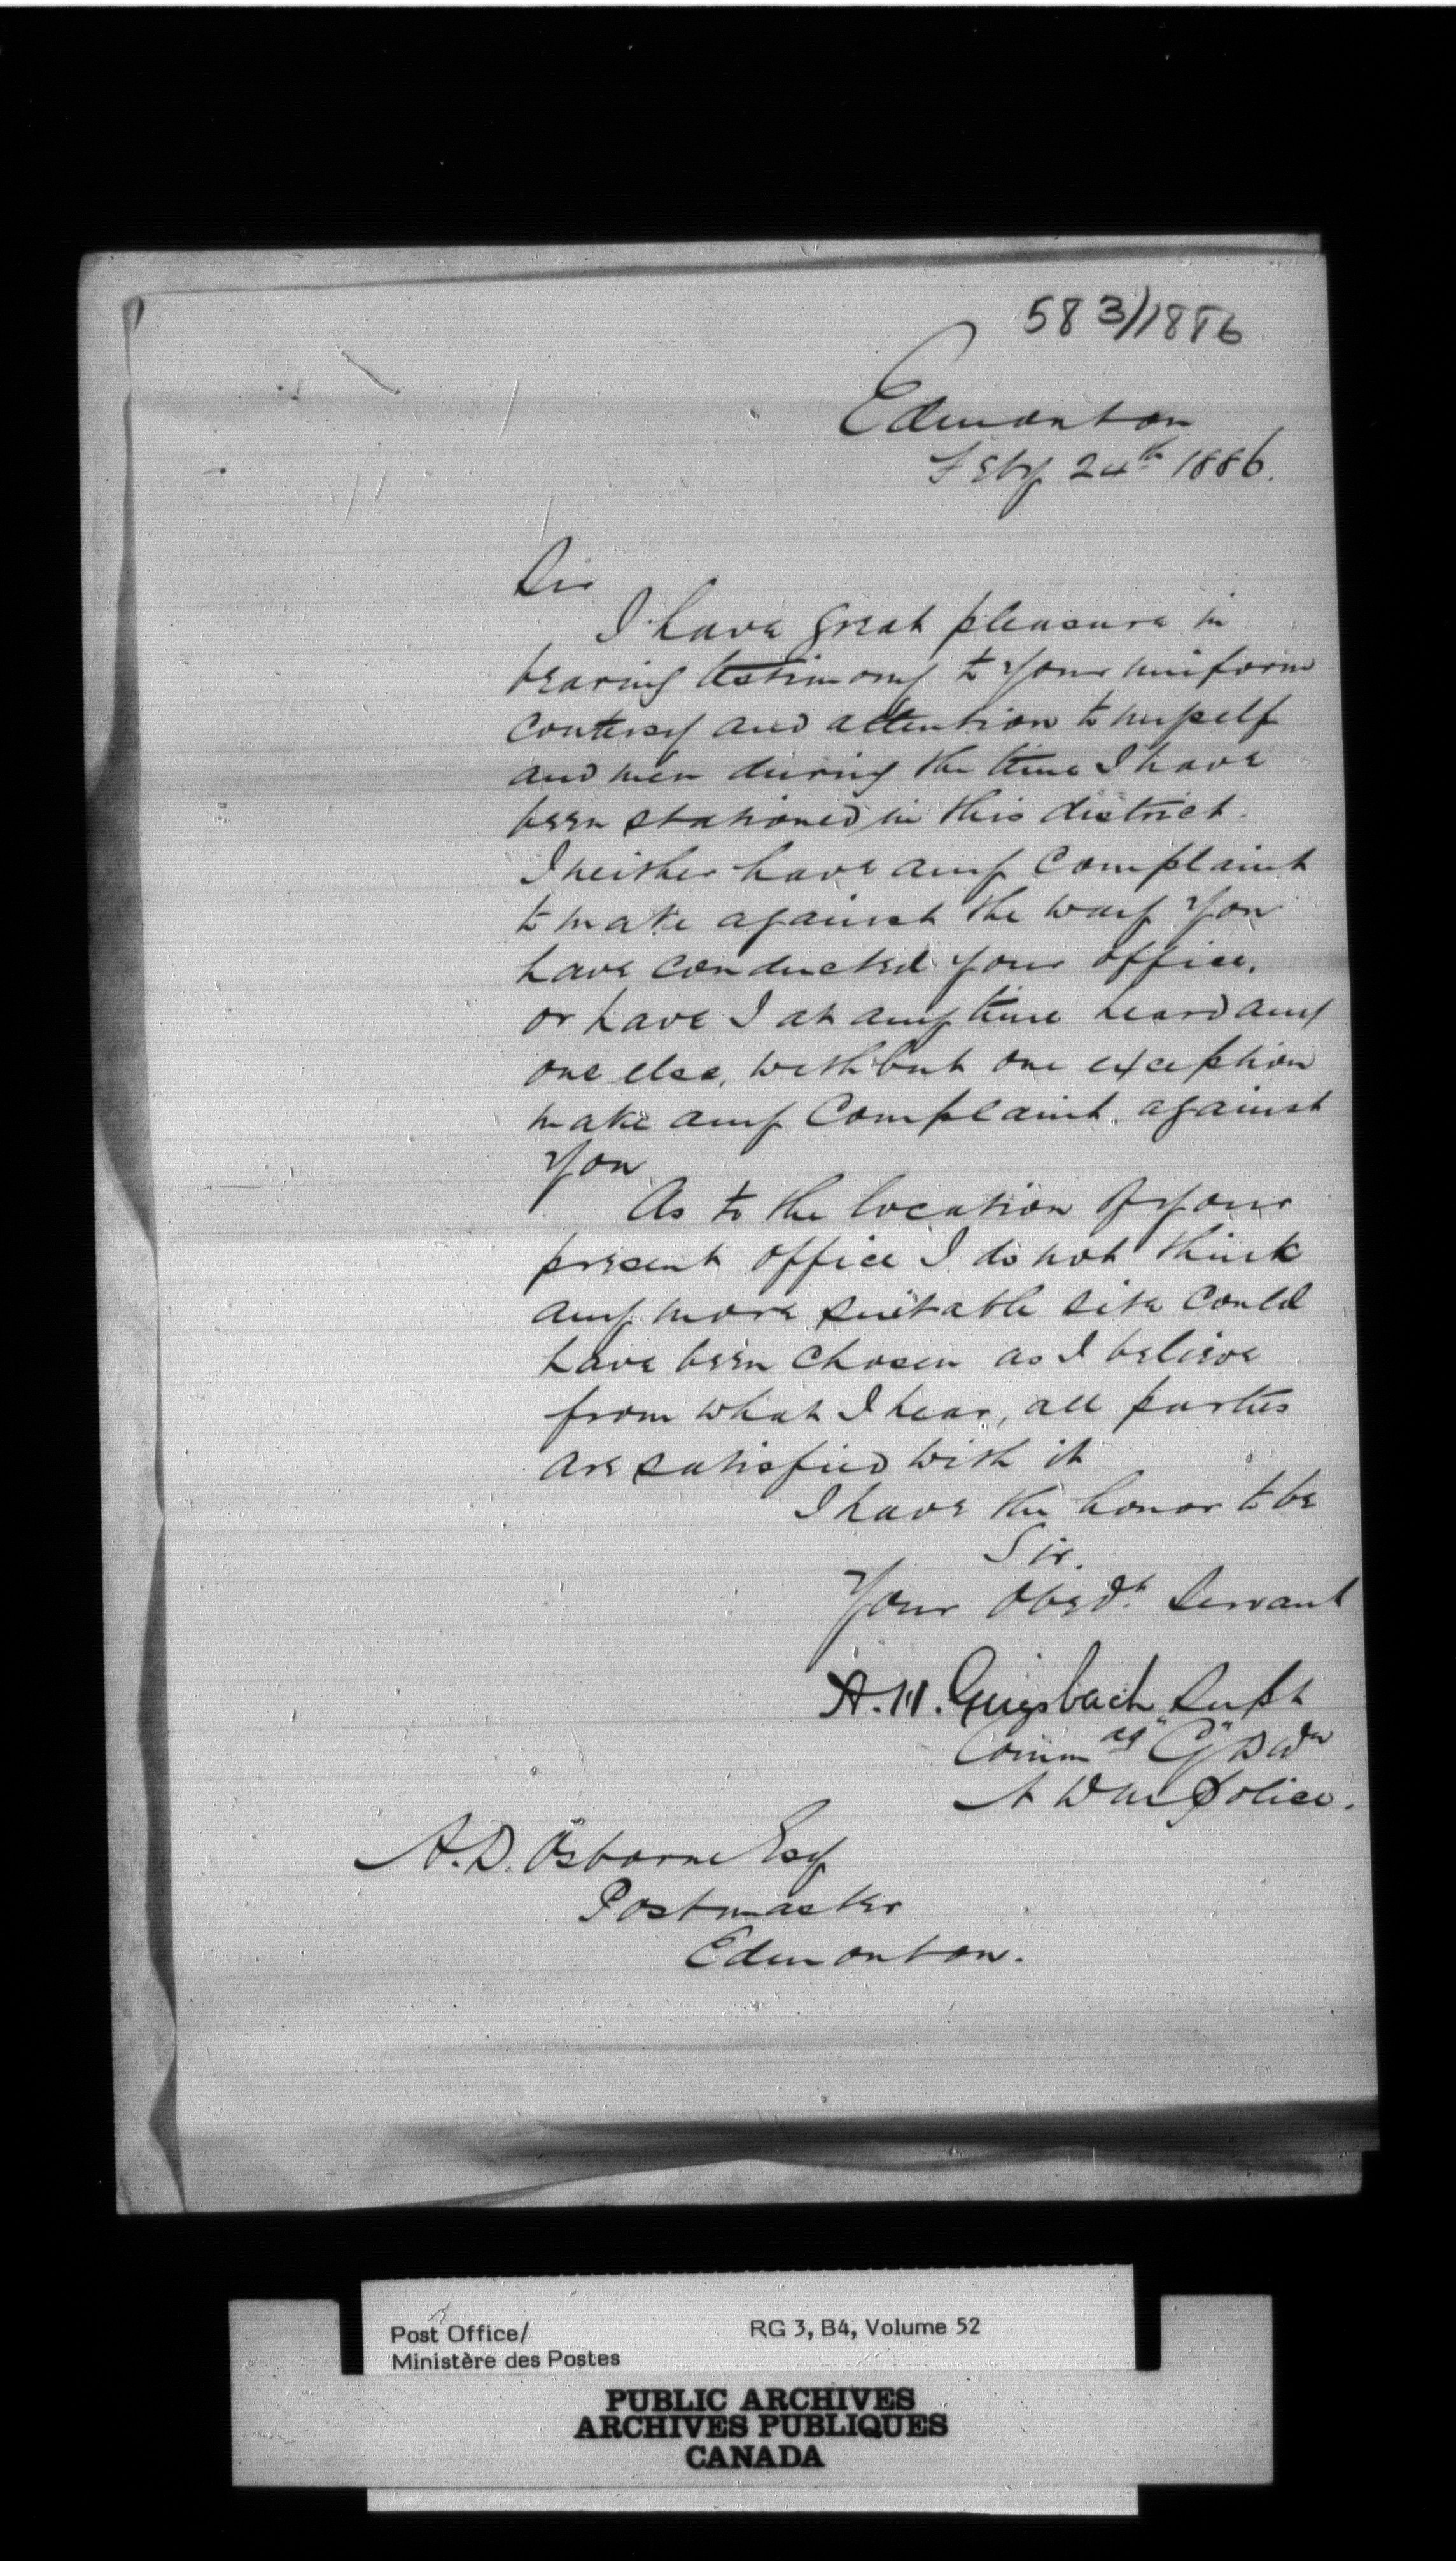 583/1886
Edmonton
Feby 24th 1886.
Sir
I have great pleasure in
bearing testimony to your uniform
courtesy and attention to myself
and men during the time I have
been stationed in this district.
I neither have any complaint
to make against the way you
have conducted your office,
or have I at any time heard any
one else, with but one exception
make any complaint against
you
As to the location of your
present office I do not think
any more suitable site could
have been chosen as I believe
from what I hear, all parties
are satisfied with it
I have the honor to be
Sir.
Your Obedt. Servant
A. H. Griesbach Supt
Commdg "G" Divn
N W M Police.
A. D. Osborne Esq
Postmaster
Edmonton.
Post Office/ RG 3, B4, Volume 52
Ministère des Postes
PUBLIC ARCHIVES
ARCHIVES PUBLIQUES
CANADA